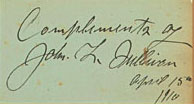 Complements of
John L Sullivan
April 15th
1910